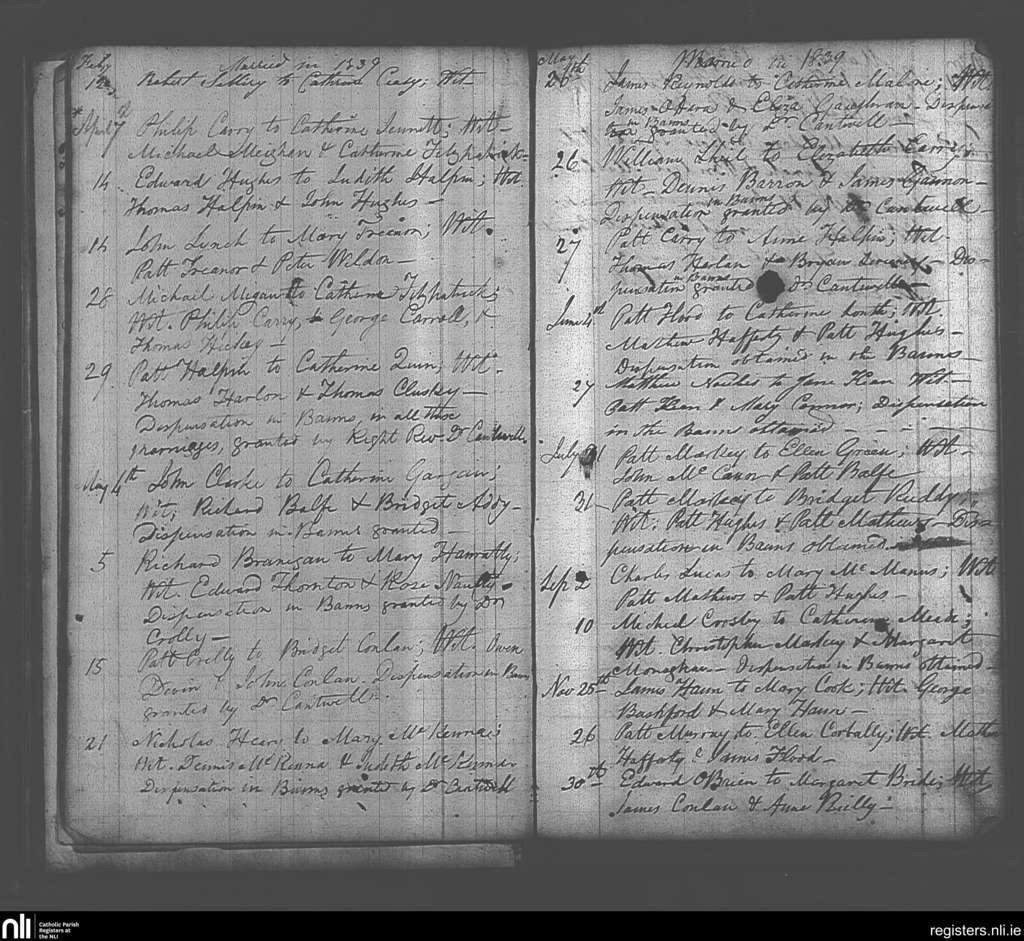 Feby Married in 1839
Robert Sibley to Catherine Wit
April 7th Philip Carry to Catherine Jennett; Wit
Michael Meighan & Catherine Fitzpatrick
14 Edward Hughes to Judith Halpin; Wit.
Thomas Halpin & John Hughes
14 John Lynch to Mary Treanor; Wit.
Patt Treanor & Peter Weldon
28 Michael Megan to Catherine Fitzpatrick;
Wit. Philip Carry, & George Carroll, &
Thomas Hickey
29 Patt Halpin to Catherine Quin; Wit.
Thomas Harlon & Thomas Clusky
Dispensation in Banns, in all these
marriages, granted by Right Rev. Dr Cantwell
May 4th John Clarke to Catherine Gargan;
Wit; Richard Balfe & Bridget Addy
Dispensation in Banns granted
5 Richard Branigan to Mary Hanratty;
Wit. Edward Thornton & Rose
Dispensation in Banns granted by Dr
Crolly
15 Patt Crilly to Bridget Conlan; Wit. Owen
Devin & John Conlan. Dispensation in Banns
granted by Dr Cantwell
21 Nicholas Heary to Mary McKenna;
Wit. Dennis McKenna & Judith McKenna
Dispensation in Banns granted by Dr Cantwell
May Married in 1839
26th James Reynolds to Catherine Malone; Wit
James O'Hara & Eliza Gaughran - Dispensa
in Banns
tion granted by Dr Cantwell
26 William Shiel to Elizabeth Carry;
Wit - Dennis Barron & James Gannon -
in Banns
Dispensation granted by Dr Cantwell
27 Patt Carry to Anne Halpin; Wit
Thomas Harlan & Bryan - Dis-
in Banns
pensation granted Dr Cantwell
June 4th Patt Flood to Catherine; Wit.
Mathew Haffaty & Patt Hughes -
Dispensation obtained in the Banns
27 Matthew to Jane Kean Wit
Patt Kean & Mary Connor; Dispensation
in the Banns obtained
July 21 Patt Markey to Ellen Green; Wit -
John McCann & Patt Balfe
31 Patt Markey to Bridget Ruddy;
Wit; Patt Hughes & Patt Mathews - Dis-
pensation in Banns obtained
Sep 2 Charles Lucas to Mary McManus; Wit
Patt Mathews & Patt Hughes -
10 Michael Crosby to Catherine Meade;
Wit. Christopher Markey & Margaret
Monaghan - Dispensation in Banns obtained
Nov 25th James Haun to Mary Cook; Wit. George
Bashford & Mary Haun
26 Patt Murray to Ellen Corbally; Wit. Mathew
Haffaty & James Flood
30th Edward O'Brien to Margaret Bride; Wit
James Conlan & Anne Reilly
nli
Catholic Parish
Registers at
the NLI
registers.nli.ie